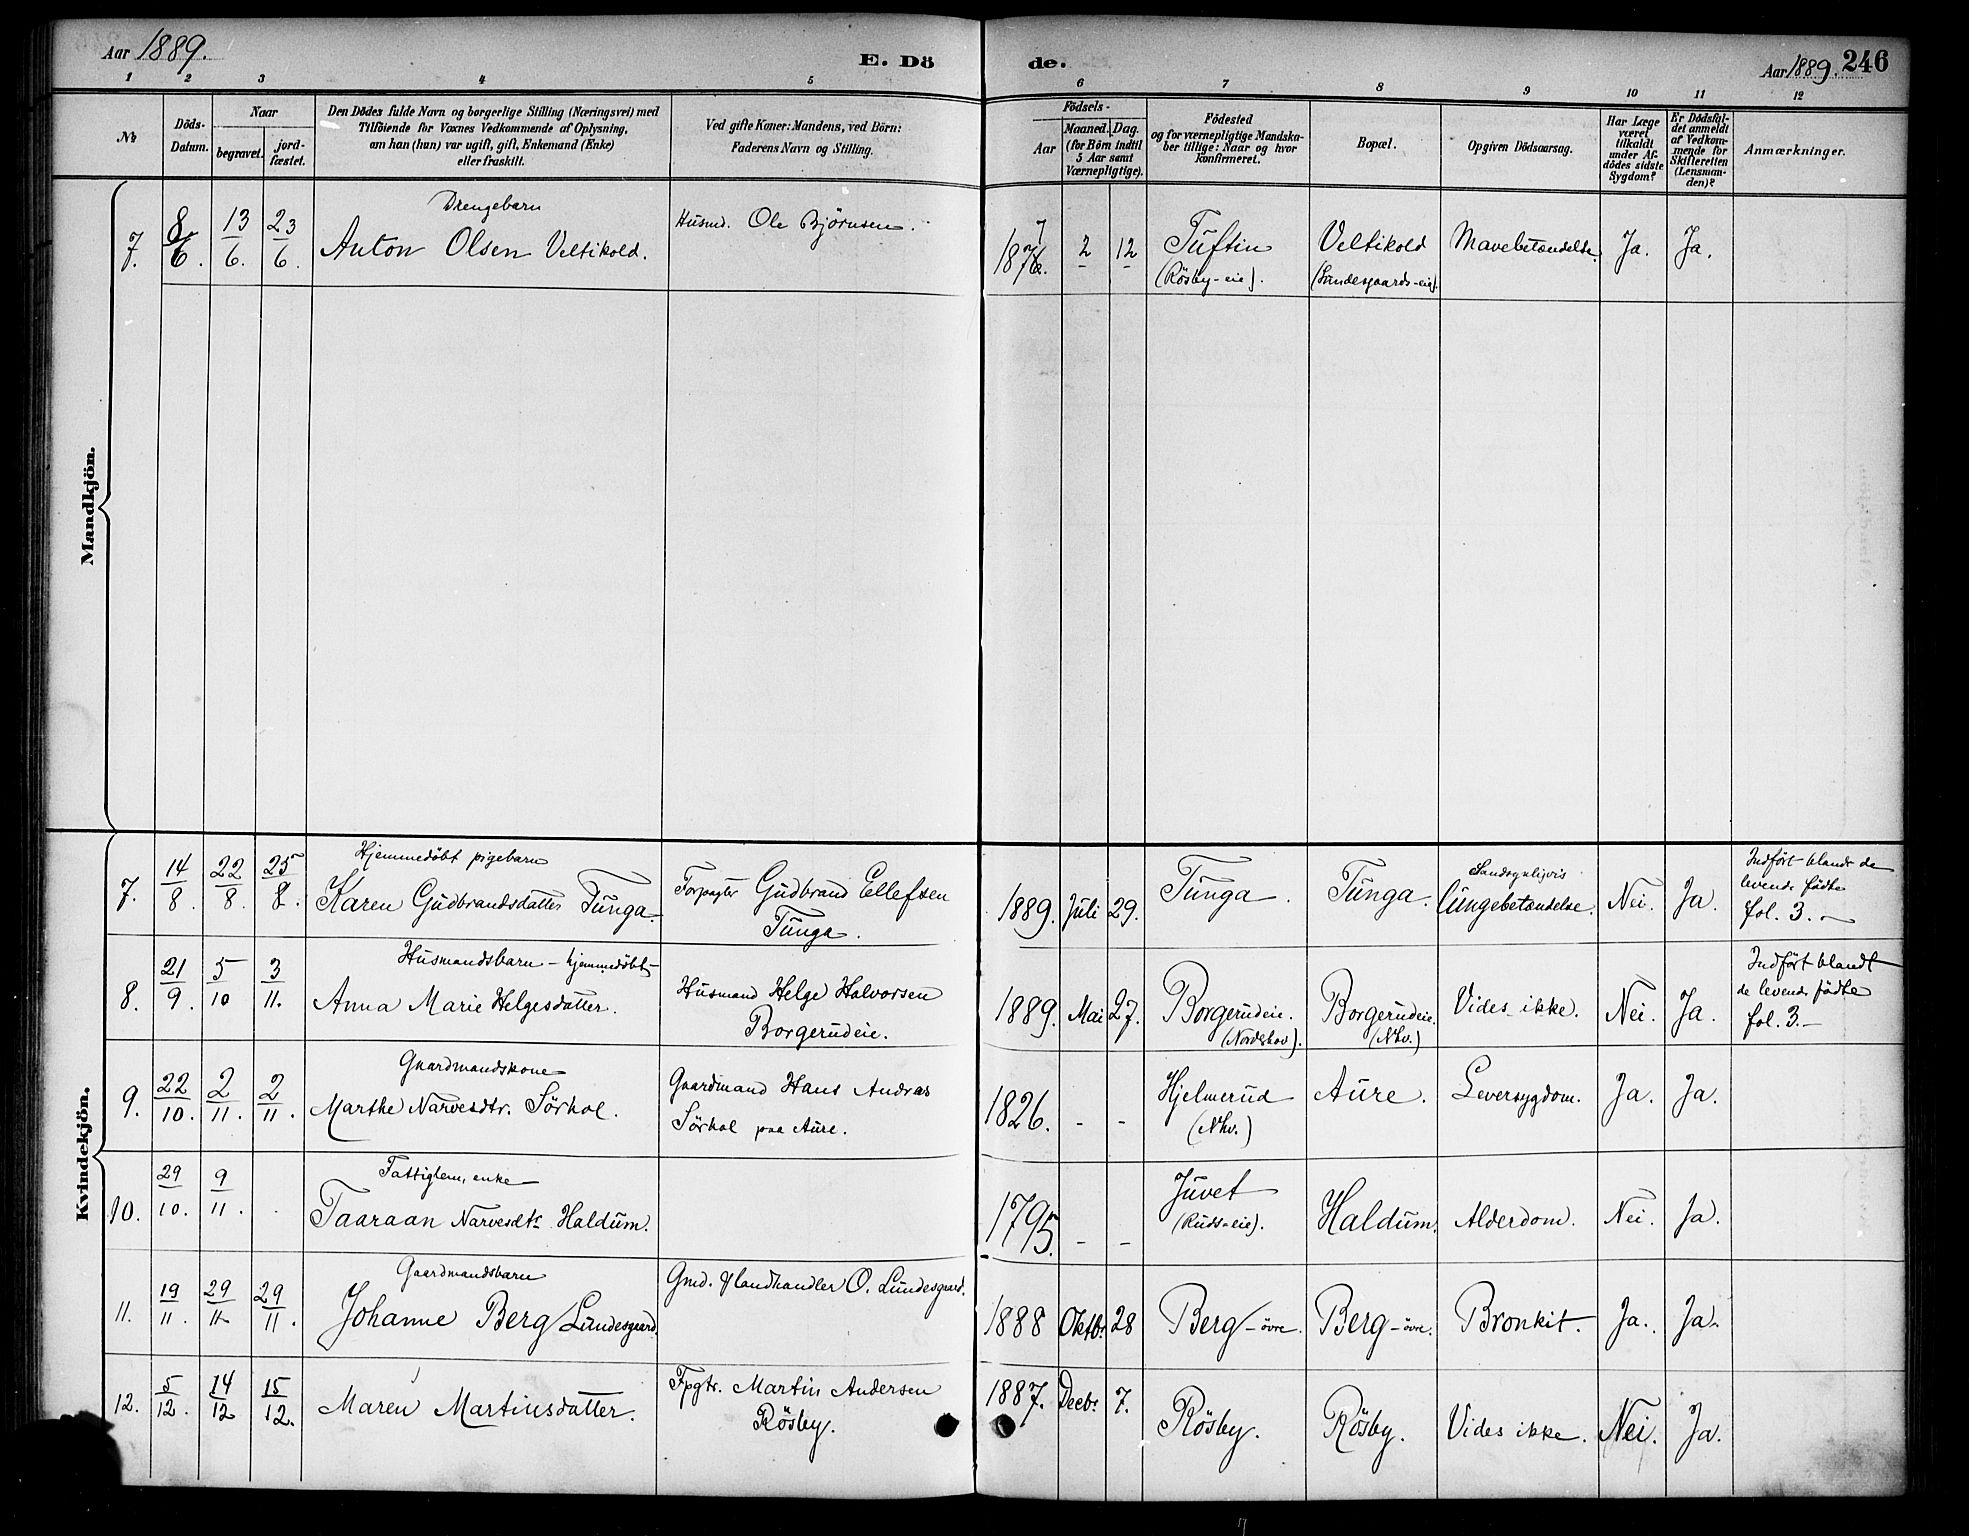 Aar 1889.
E. Dö
de.
Aar 1889. 246
1 2 3 4 5 6 7 8 9 10 11 12
No
Döds-
Datum.
Naar
begravet.
jord-
fæstet.
Den Dödes fulde Navn og borgerlige Stilling (Næringsvei) med
Tilföiende for Voxnes Vedkommende af Oplysning,
om han (hun) var ugift, gift, Enkemand (Enke)
eller fraskilt.
Ved gifte Koner: Mandens, ved Börn:
Faderens Navn og Stilling.
Födsels-
Aar
Maaned. Dag.
(for Börn indtil
5 Aar samt
Værnepligtige).
Födested
og for værnepligtige Mandska-
ber tillige: Naar og hvor
konfirmeret.
Bopæl.
Opgiven Dödsaarsag.
Har Læge
været
tilkaldt
under Af-
dödes sidste
Sygdom?
Er Dödsfal-
det anmeldt
af Vedkom-
mende for
Skifteretten
(Lensman-
den)?
Anmærkninger.
Mandkjön.
Drengebarn
7. 8/6. 13/6. 23/6. Anton Olsen Veltikold.
Husmd. Ole Björnsen.
7
1876. 2 12
Tuftin
(Rösby-eie).
Veltikold
(Lundesgaards-eie).
Mavebetændelse. Ja. Ja.
Kvindekjön.
Hjemmedöbt pigebarn
7. 14/8. 22/8. 25/8. Karen Gudbrandsdatter Tunga.
Forpagter Gudbrand Ellefsen
Tunga.
1889. Juli 29. Tunga. Tunga.
Sandsynligvis
lungebetændelse. Nei. Ja.
Indfört blandt de
levende födte
fol. 3.
Husmandsbarn - hjemmedöbt
8. 21/9. 5/10 3/11. Anna Marie Helgesdatter.
Husmand Helge Halvorsen
Borgerudeie.
1889. Mai 27. Borgerudeie.
(Norderhov).
Borgerudeie.
(Nhv.)
Vides ikke. Nei. Ja.
Indfört blandt
de levende födte
fol. 3.
Gaardmandskone
9. 22/10. 2/11. 2/11. Marthe Narvesdtr. Sörhol.
Gaardmand Hans Andreas
Sörhol paa Aure.
1826. - - Hjelmerud
(Nhv.)
Aure. Leversygdom. Ja. Ja.
Fattiglem, enke
10. 29/10. 9/11. Taaraan Narvesdtr Haldum.
1795. - - Juvet
(Ruds-eie).
Haldum. Alderdom. Nei. Ja.
Gaardmandsbarn
11. 19/11. 29/11 29/11. Johanne Berg/Lundesgaard.
Gmd. & landhandler O. Lundesgaard.
1888 Oktbr. 28 Berg-övre. Berg-övre. Bronkit. Ja. Ja.
12. 5/12. 14/12 15/12. Maren Martinsdatter.
Fpgtr. Martin Andersen
Rösby.
1887. Decbr. 7. Rösby. Rösby. Vides ikke. Nei. Ja.